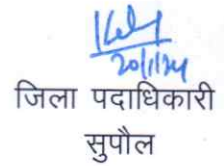 20/1/24
जिला पदाधिकारी
सुपौल